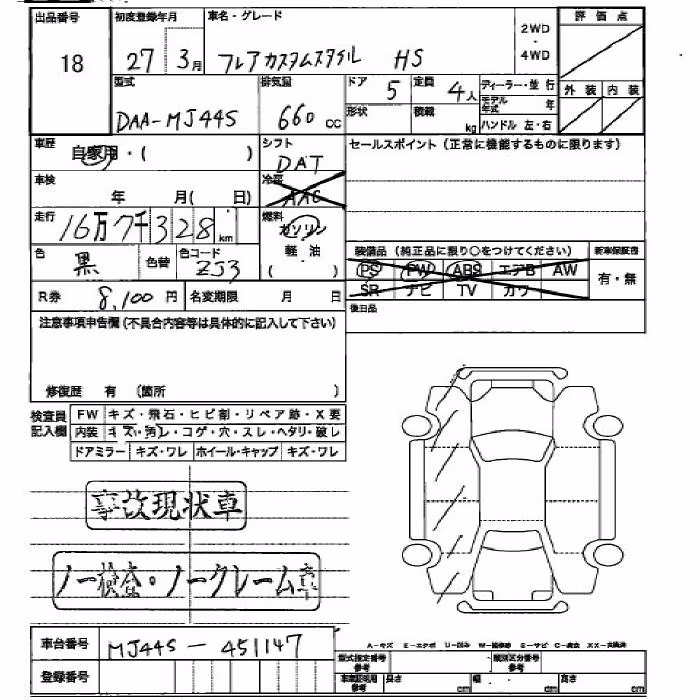 出品番号 初度登録年月 車名・グレード 2WD・4WD 評価点
18 27 3月 フレアカスタムスタイル HS
型式 排気量 ドア 5 定員 4人 ディーラー・並行 外装 内装
DAA-MJ44S 660 cc 形状 積載 kg モデル年式 年
ハンドル 左・右
車歴 自家用・( ) シフト DAT セールスポイント(正常に機能するものに限ります)
車検 年 月( 日) 冷房 AAC
走行 16万7千328 km 燃料 ガソリン
軽油
( )
色 黒 色替 色コード ZJ3
装備品(純正品に限り○をつけてください) 新車保証書
PS PW ABS エアB AW 有・無
SR ナビ TV カワ
R券 8,100円 名変期限 月 日 後日品
注意事項申告欄(不具合内容等は具体的に記入して下さい)
修復歴 有 (箇所 )
検査員記入欄 FW キズ・飛石・ヒビ割・リペア跡・X要
内装 キズ・汚レ・コゲ・穴・スレ・ヘタリ・破レ
ドアミラー キズ・ワレ ホイール・キャップ キズ・ワレ
事故現状車
ノー検査・ノークレーム
車台番号 MJ44S-451147
A-キズ E-エクボ U-凹み
登録番号
型式指定番号参考 類別区分番号参考
車庫証明用参考 長さ cm 幅 cm 高さ cm